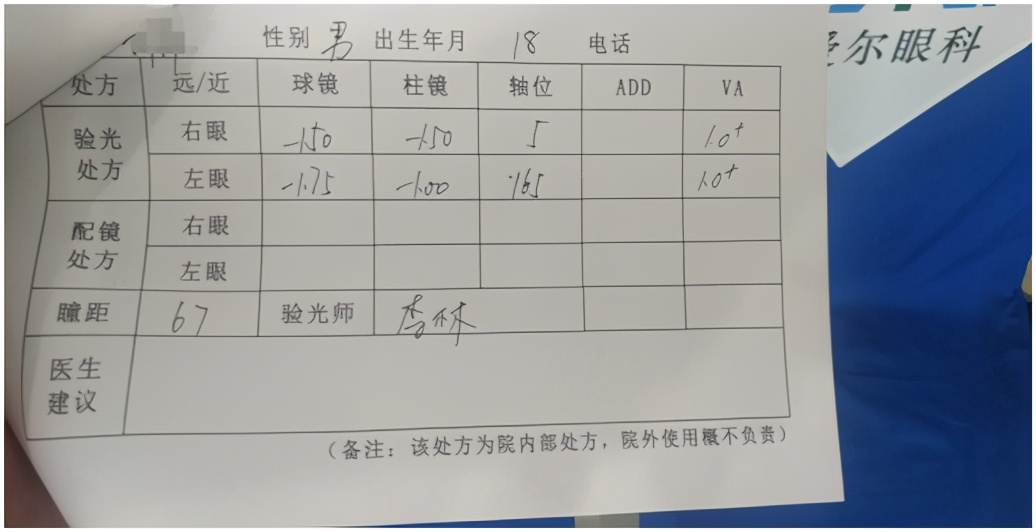 性别 男 出生年月 18 电话
爱尔眼科
处方 远/近 球镜 柱镜 轴位 ADD VA
验光处方 右眼 -1.50 -1.50 5 1.0+
左眼 -1.75 -1.00 165 1.0+
配镜处方 右眼
左眼
瞳距 67 验光师 李林
医生建议
(备注：该处方为院内部处方，院外使用概不负责)